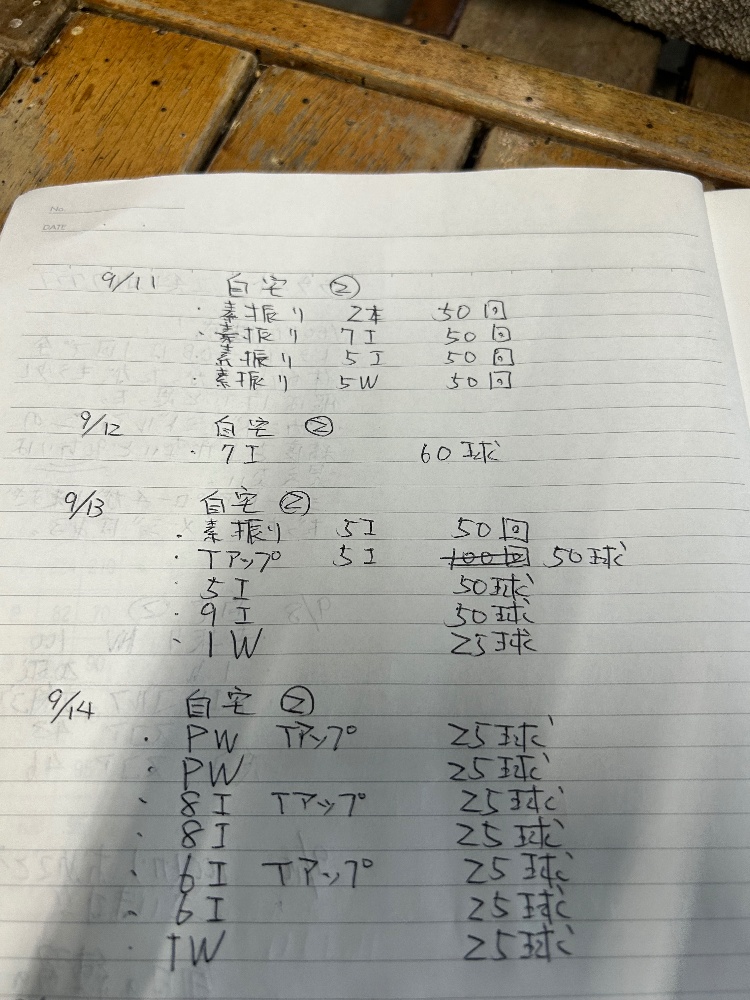 No.
DATE
9/11 自宅 ②
・素振り 2本 50回
・素振り 7I 50回
・素振り 5I 50回
・素振り 5W 50回
9/12 自宅 ②
・7I 60球
9/13 自宅 ②
・素振り 5I 50回
・Tアップ 5I 100回 50球
・5I 50球
・9I 50球
・1W 25球
9/14 自宅 ②
・PW Tアップ 25球
・PW 25球
・8I Tアップ 25球
・8I 25球
・6I Tアップ 25球
・6I 25球
・1W 25球